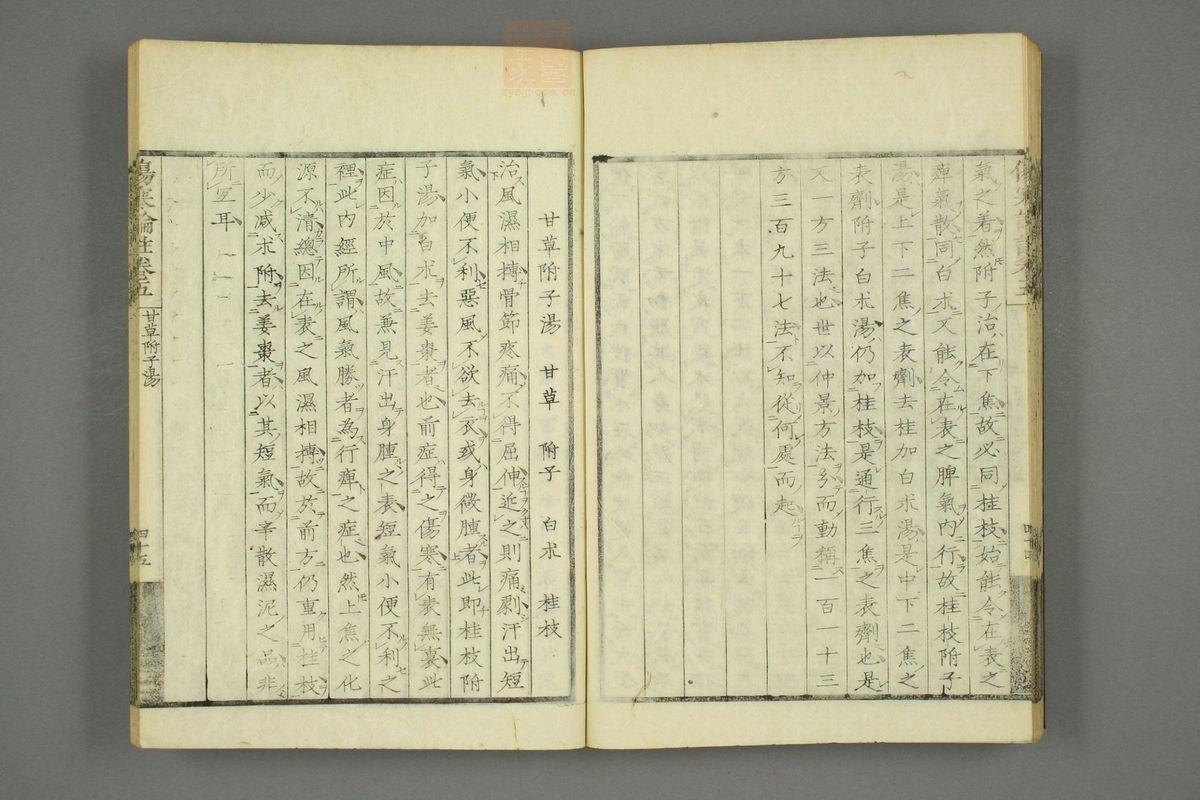 氣之著然附子治在下焦故必同桂枝始能令在表之
痺氣散同白朮又能令在表之脾氣內行故桂枝附子
湯是上下二焦之表劑去桂加白朮湯是中下二焦之
表劑附子白朮湯仍加桂枝是通行三焦之表劑也是
又一方三法也世以仲景方法引而動稱一百一十三
方三百九十七法不知從何處而起
甘草附子湯 甘草 附子 白朮 桂枝
治風濕相摶骨節疼痛不得屈伸近之則痛劇汗出短
氣小便不利惡風不欲去衣或身微腫者此即桂枝附
子湯加白朮去姜棗者也前症得之傷寒有表無裏此
症因於中風故兼見汗出身腫之表短氣小便不利之
裡此內經所謂風氣勝者為行痺之症也然上焦之化
源不清總因在表之風濕相摶故於前方仍重用桂枝
而少減朮附去姜棗者以其短氣而辛散濕泥之品非
所宜耳
傷寒論註卷五
甘草附子湯
四十五